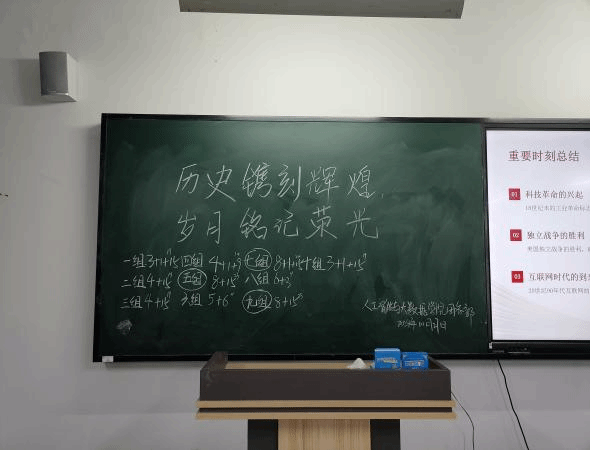 历史镌刻辉煌,
岁月铭记荣光
一组3+1+15" 四组 4+1+9" 七组 8+1+15" 十组 3+1+15"
二组4+15" 五组 8+15" 八组 6+3"
三组4+15" 六组 5+6" 九组 8+15"
人工智能与大数据学院团总支部
重要时刻总结
01 科技革命的兴起
18世纪末的工业革命标志
02 独立战争的胜利
美国独立战争的胜利,
03 互联网时代的到
20世纪90年代互联网的